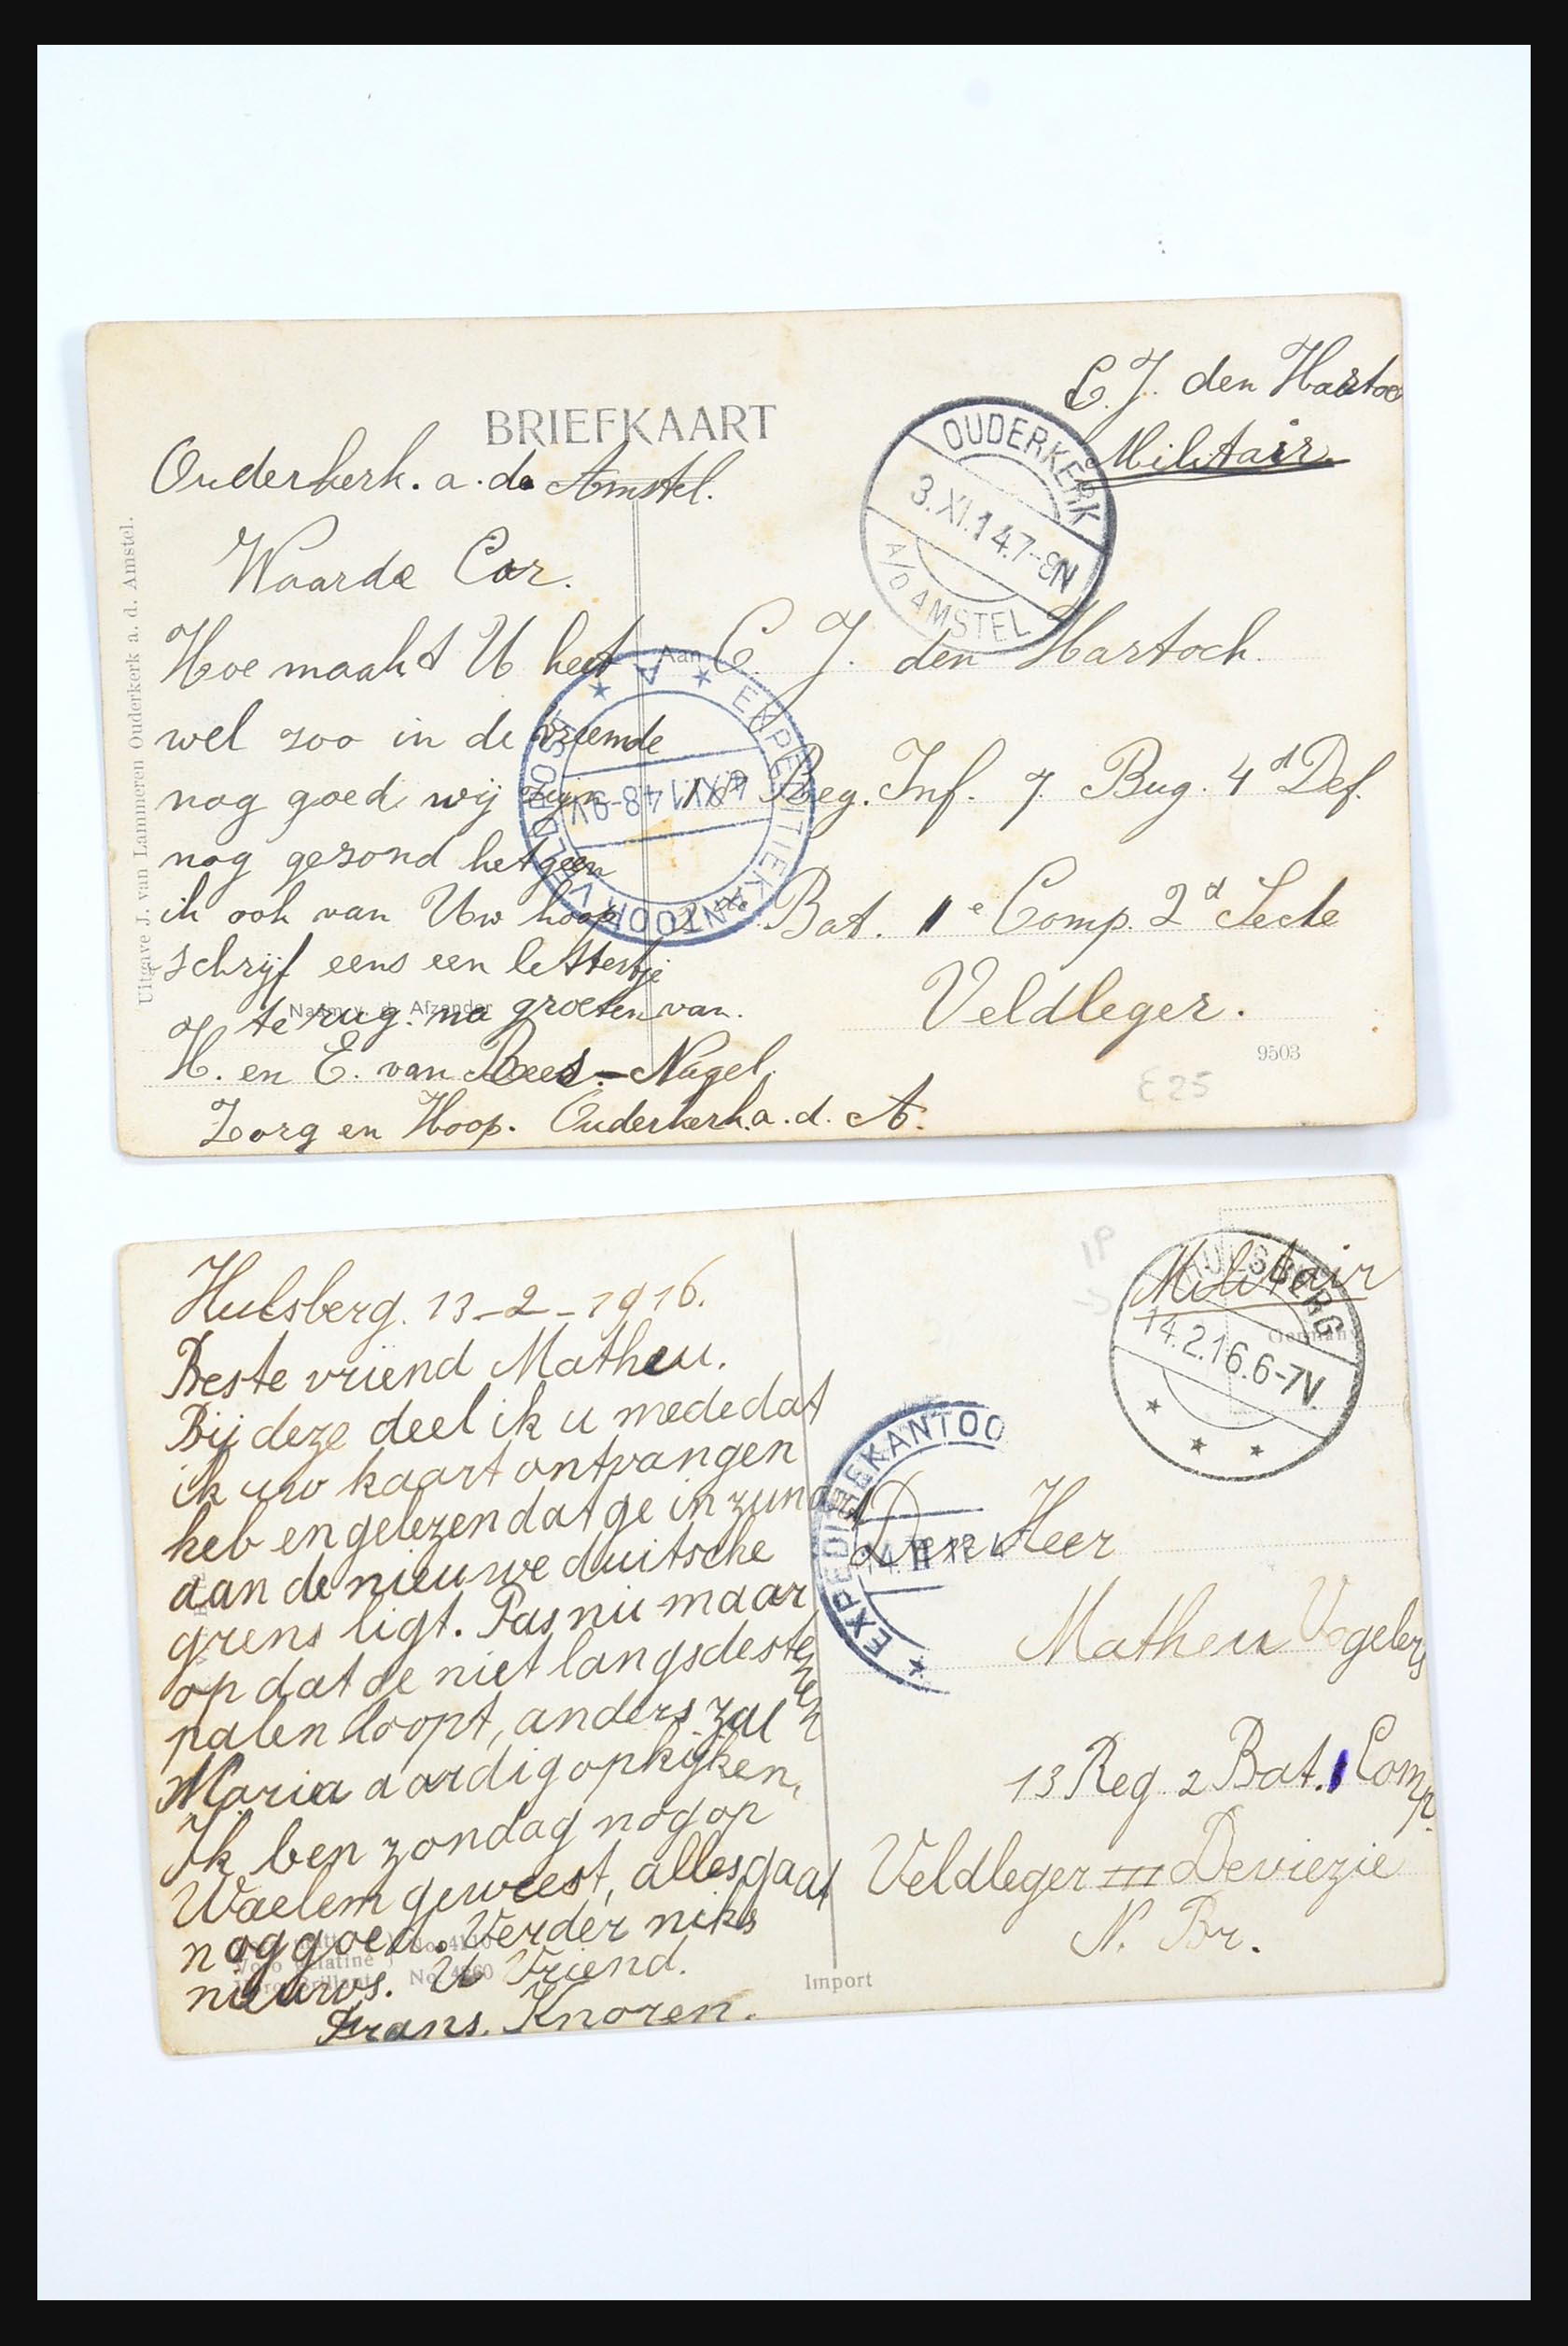 BRIEFKAART
C. J. den Hartoc
Militair
OUDERKERK
3.XI.14.7-8N
A/D AMSTEL
Ouderkerk. a. de Amstel.
Waarde Cor.
Hoe maakt U heet
wel zoo in de vreemde
nog goed wij zijn
nog gezond hetgeen
ik ook van Uw hoop
schrijf eens een lettertje
terug. na groeten van.
H. en E. van Rees - Nagel.
Zorg en Hoop. Ouderkerk a. d. A.
Naam v. d. Afzender
Uitgave J. van Lammeren Ouderkerk a. d. Amstel.
Aan C. J. den Hartoch.
Reg. Inf. 7 Brig. 4d Def.
Bat. 1e Comp. 2d Secte
Veldleger.
9503
E 25
★ A ★ EXPEDITIEKANTOOR VELDPOST
4.XI.14 8-9V
Hulsberg. 13-2-1916.
Beste vriend Matheu.
Bij deze deel ik u mede dat
ik uw kaart ontvangen
heb en gelezen dat ge in zund
aan de nieuwe duitsche
grens ligt. Pas nu maar
op dat de niet langs de stenen
palen loopt, anders zal
Maria aardig opkijken,
Ik ben zondag nog op
Waelem geweest, alles gaat
nog goed. Verder niks
nieuws. U Vriend.
Frans. Knoren.
Import
1P
Militair
HULSBERG
14.2.16.6-7V.
★ EXPEDITIEKANTOO
14.II
Den Heer
Matheu Vogelers
13 Reg 2 Bat. 1 Comp.
Veldleger III Deviezie
N. Br.